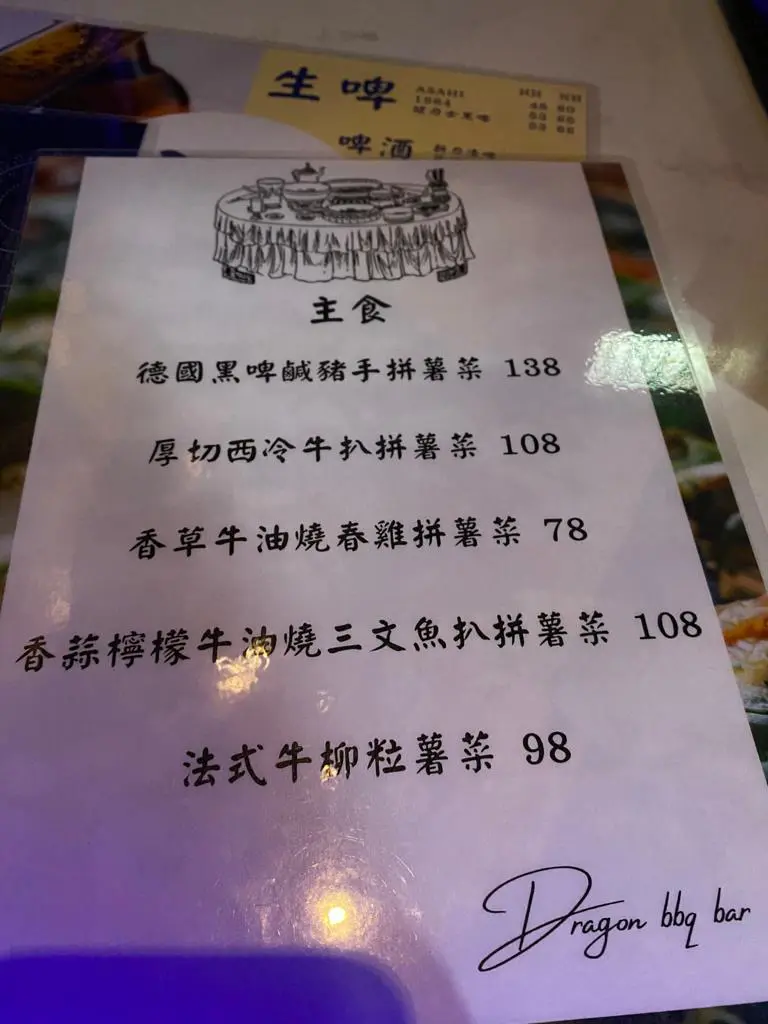 生啤
ASAHI
1664
啤酒
主食
德國黑啤鹹豬手拼薯菜 138
厚切西冷牛扒拼薯菜 108
香草牛油燒春雞拼薯菜 78
香蒜檸檬牛油燒三文魚扒拼薯菜 108
法式牛柳粒薯菜 98
Dragon bbq bar